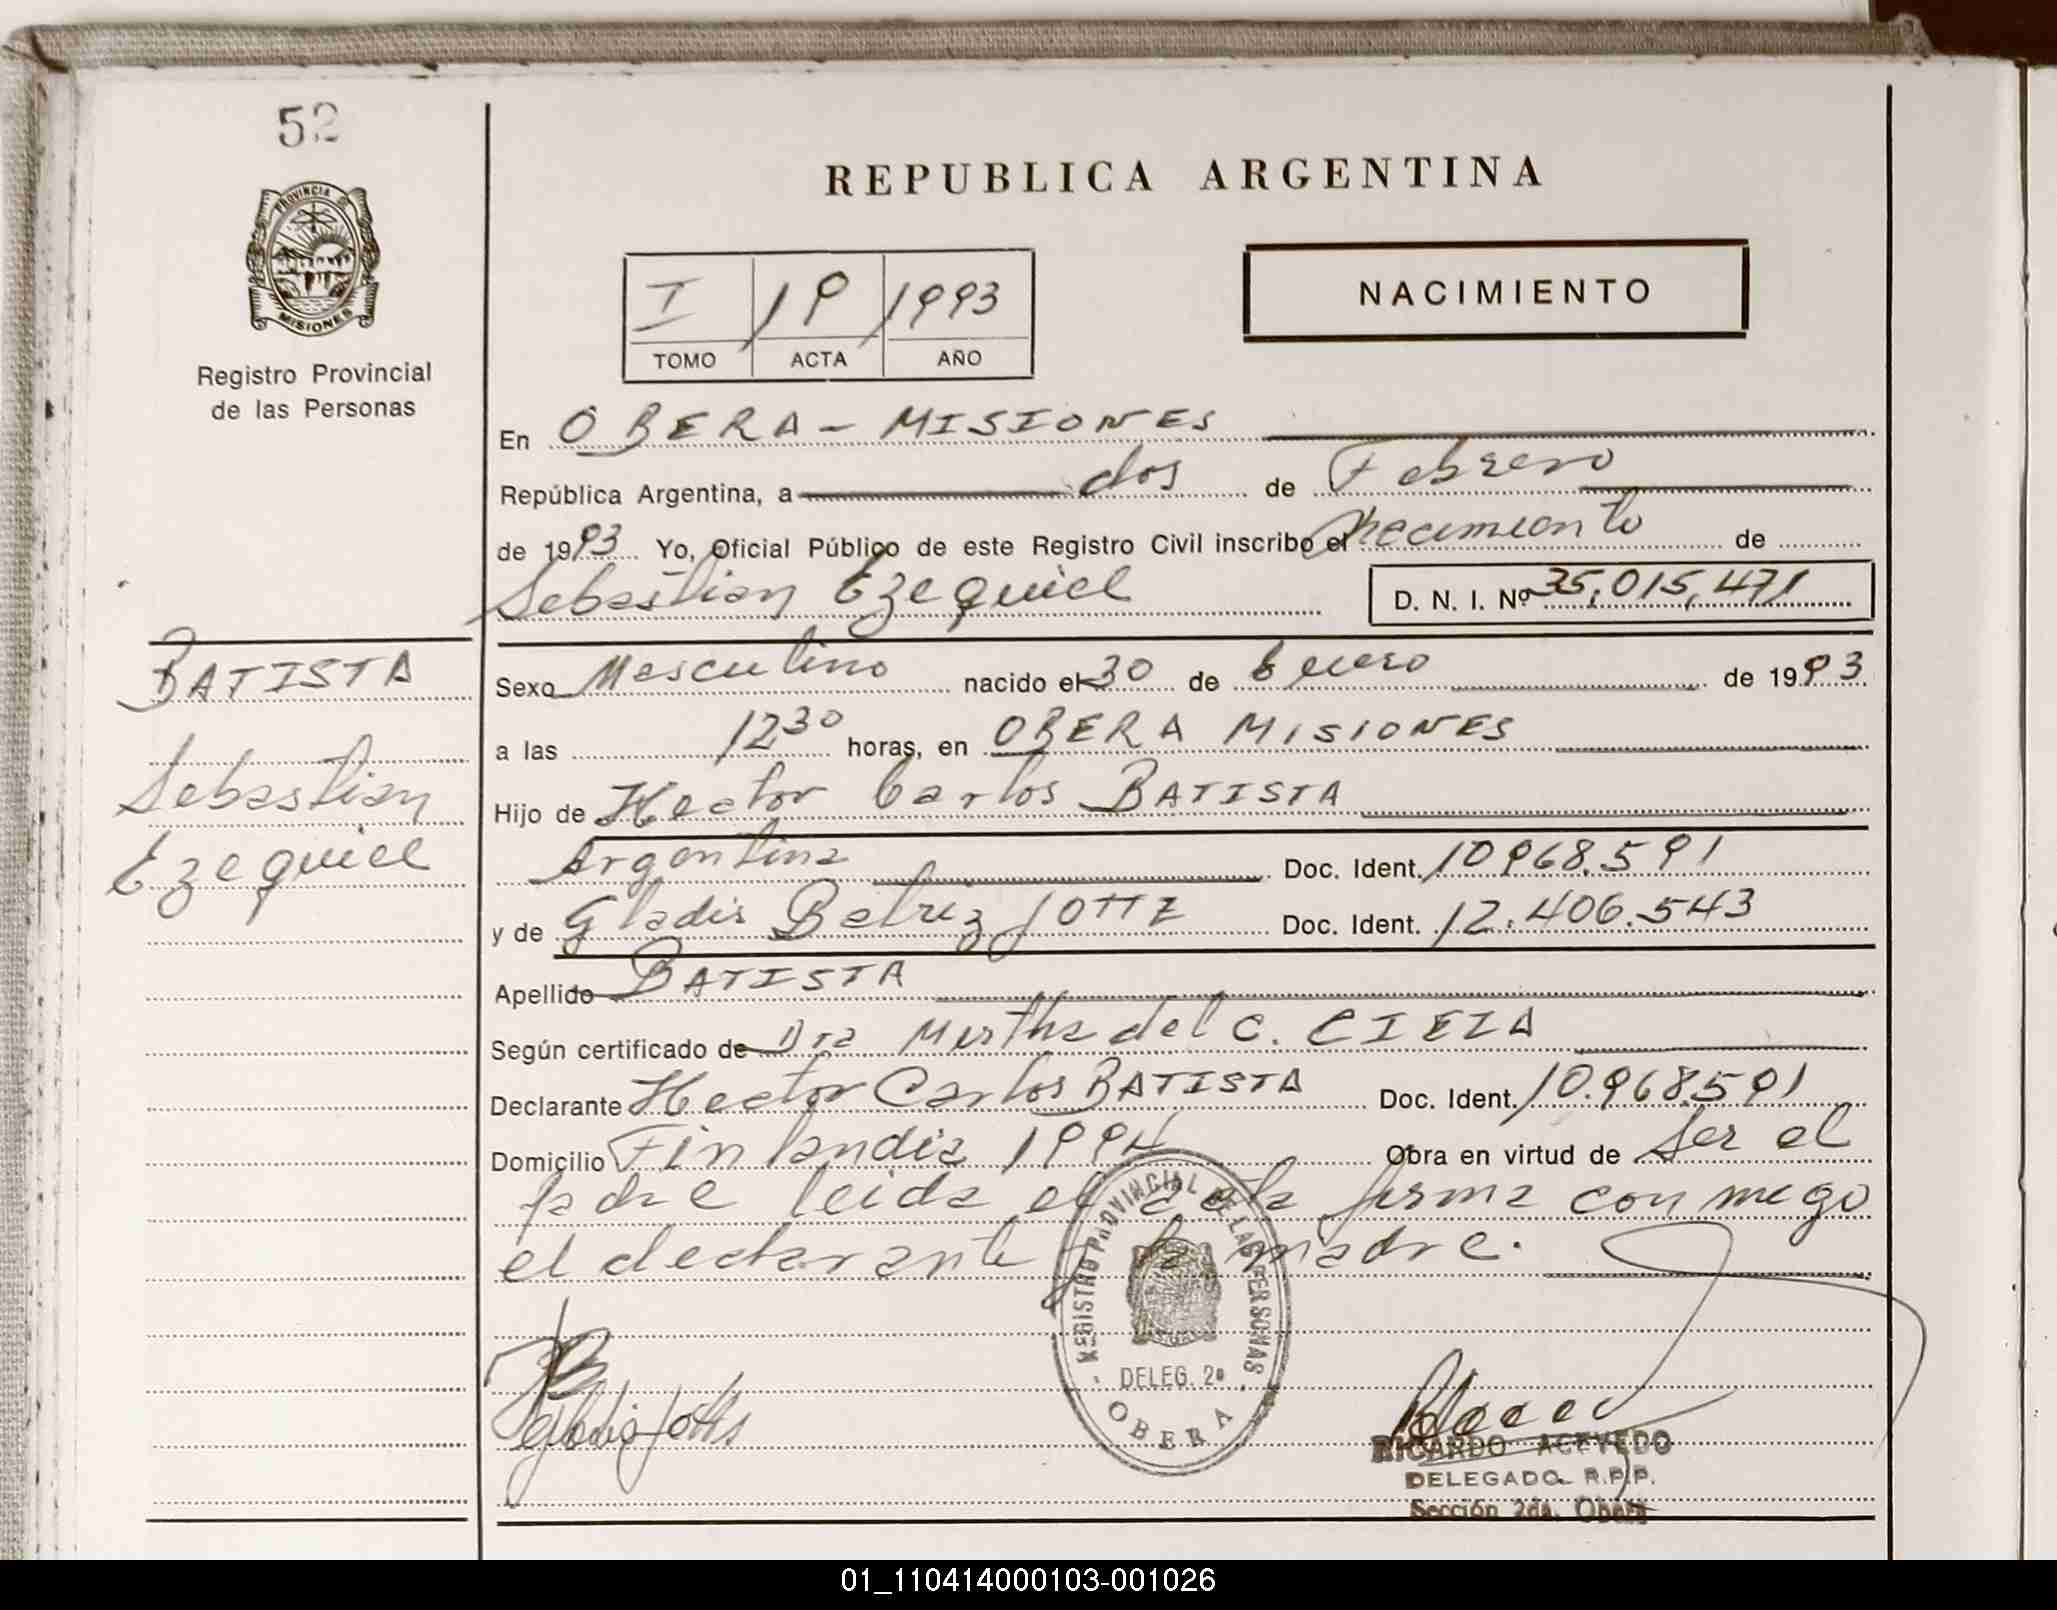 52
REPUBLICA ARGENTINA
PROVINCIA DE
MISIONES
Registro Provincial
de las Personas
I 19 1993
TOMO ACTA AÑO
NACIMIENTO
En OBERA - MISIONES
República Argentina, a dos de Febrero
de 1993 Yo, Oficial Público de este Registro Civil inscribo el Nacimiento de
Sebastian Ezequiel D. N. I. Nº 35,015,471
BATISTA
Sebastian
Ezequiel
Sexo Masculino nacido el 30 de Enero de 1993
a las 12 30 horas, en OBERA MISIONES
Hijo de Hector Carlos BATISTA
Argentina Doc. Ident. 10968.591
y de Gladis Beatriz JOTTZ Doc. Ident. 12.406.543
Apellido BATISTA
Según certificado de Dra Mirtha del C. CIEZA
Declarante Hector Carlos BATISTA Doc. Ident. 10.968591
Domicilio Finlandia 1994 Obra en virtud de ser el
padre leida el acta firma conmigo
el declarante y la madre.
REGISTRO PROVINCIAL DE LAS PERSONAS
DELEG. 2ª
OBERA
RICARDO ACEVEDO
DELEGADO R.P.P.
Sección 2da. Oberá
01_110414000103-001026